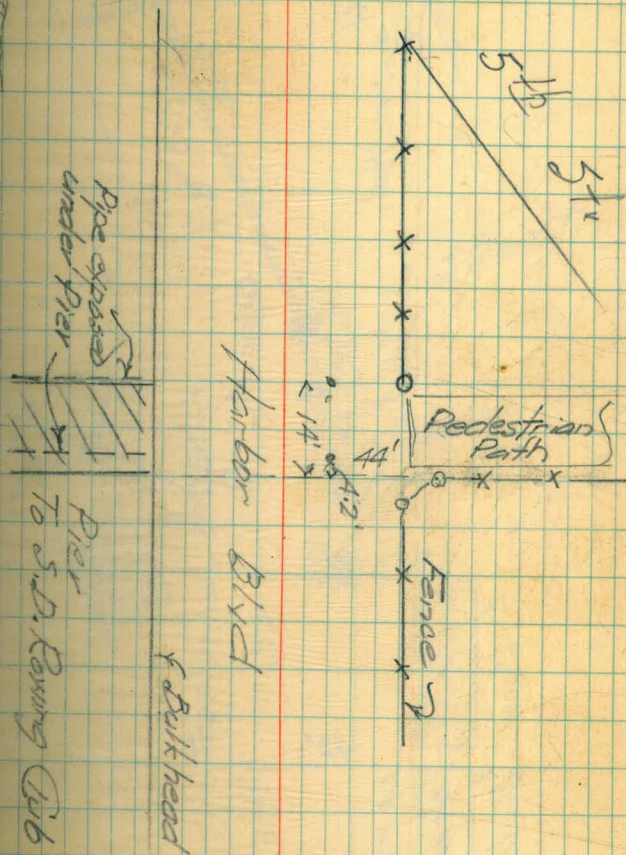 5 1/2
51"
Pedestrian
Path
44'
4.2'
14'
Fence
Harbor Blvd
Bulkhead
Pipe exposed
under Pier
Pier
To S.D. Rowing Club